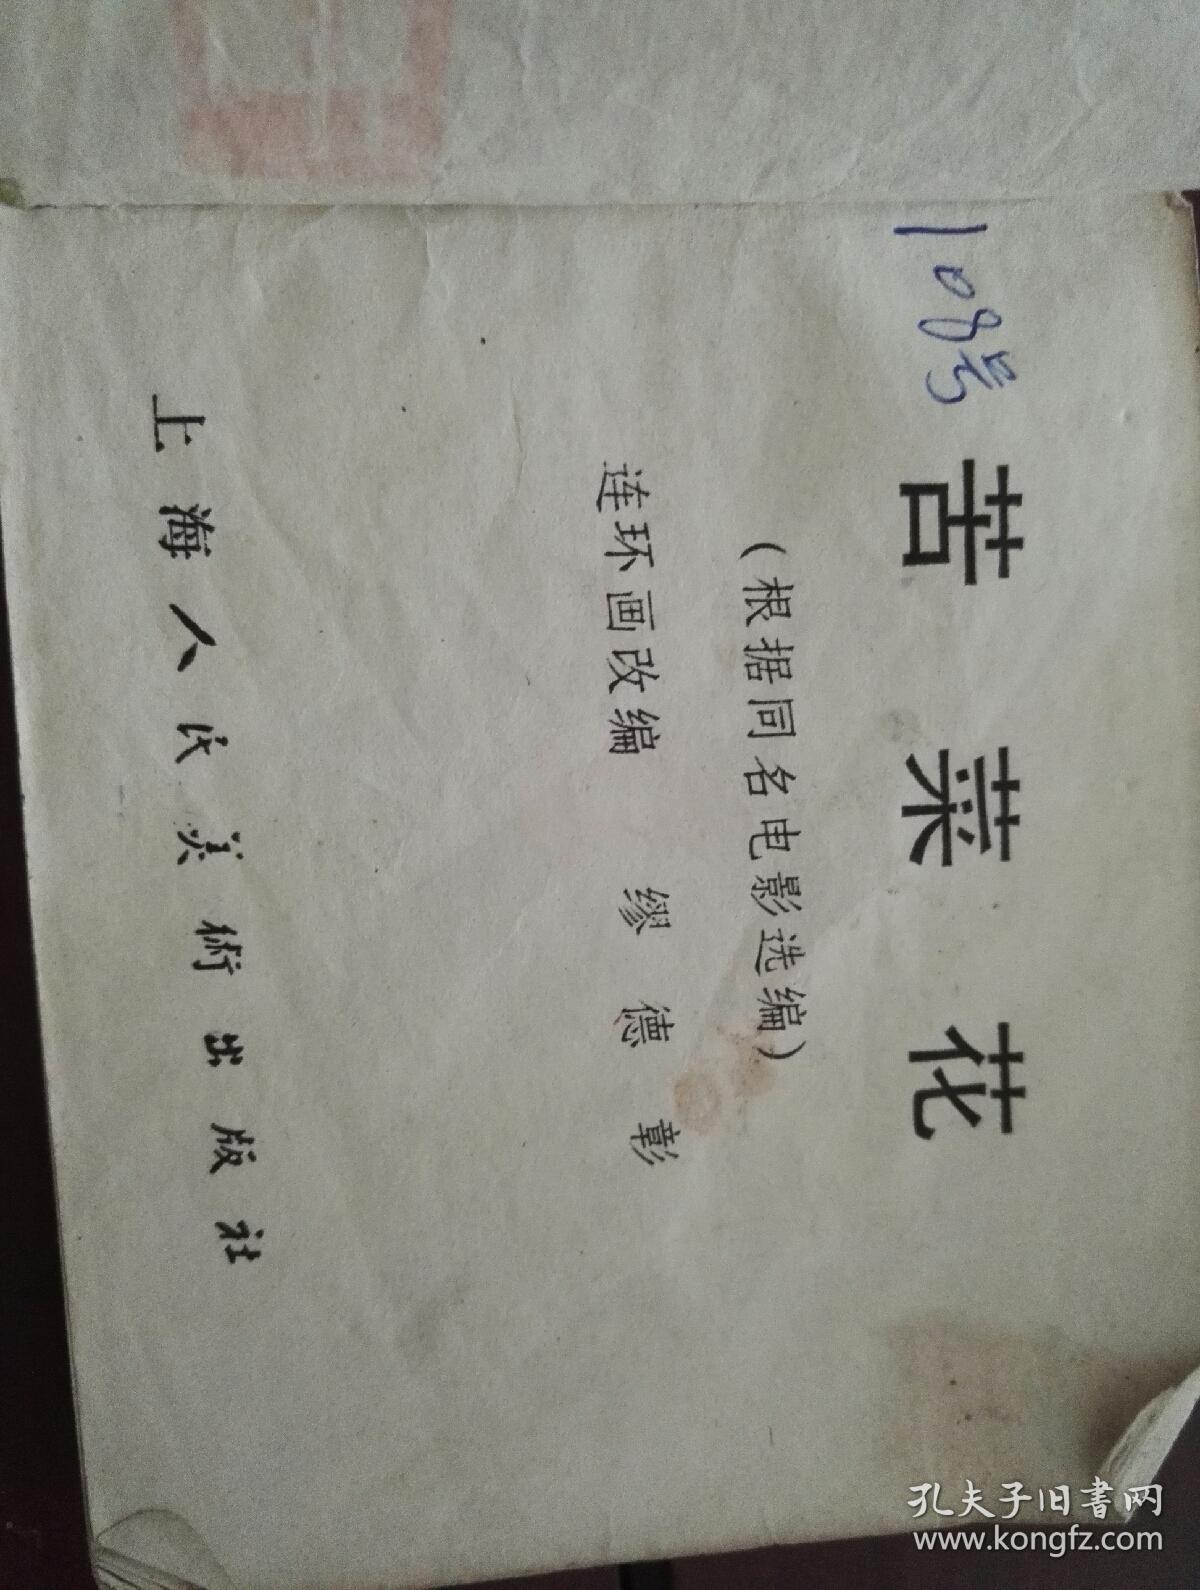 108号
苦菜花
(根据同名电影选编)
连环画改编 缪德彰
上海人民美術出版社
孔夫子旧書网
www.kongfz.com